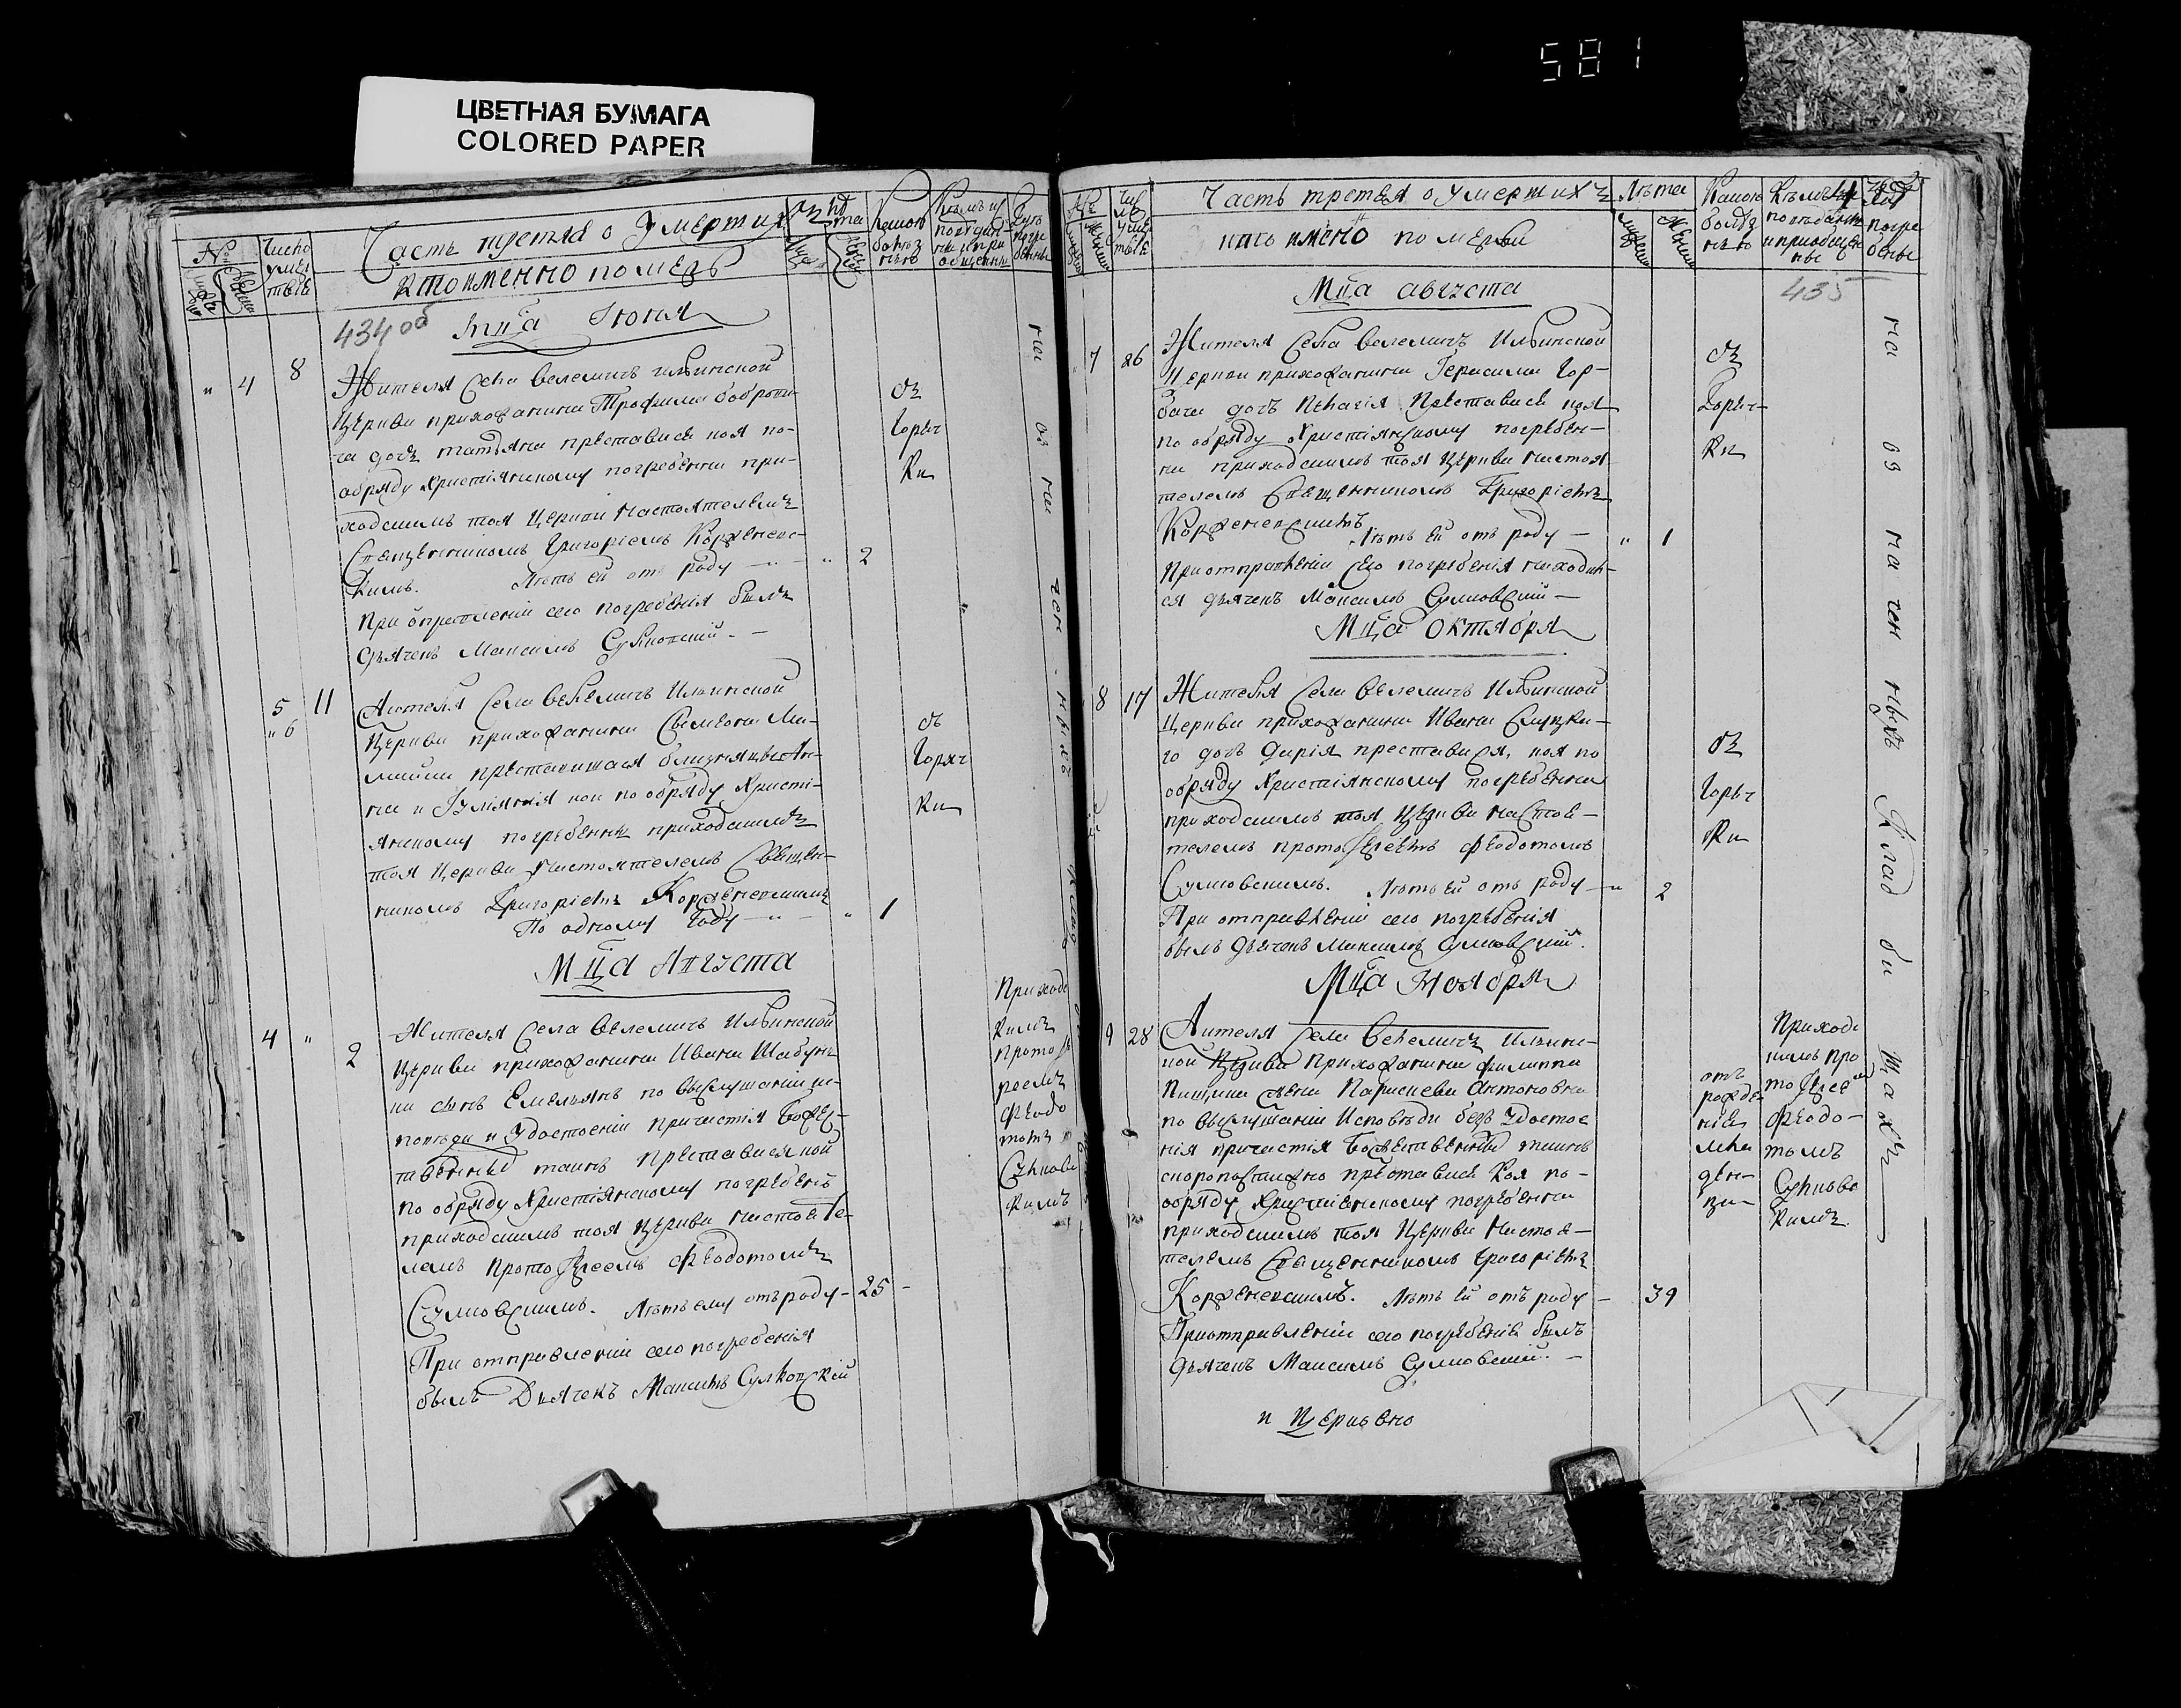 581
ЦВЕТНАЯ БУМАГА
COLORED PAPER
Часть третяя о Умершихъ
кто именно померъ
434 об
Мца Июля
4 8
Жителя Села Велемичъ Ильинской
Церкви прихожанина Трофима
дочь Татьяна преставися коя по
обряду Христіянскому погребенна при-
ходскимъ тоя Церкви Настоятелемъ
Священникомъ Григоріемъ Корженевс-
кимъ. Лѣтъ ей отъ роду 2
При отправленіи сего погребенія былъ
Дьячекъ Максимъ Сулковскій
отъ
Горяч
ки
5 11
6
Жителя Села Велемичъ Ильинской
Церкви прихожанина
преставишася близняцы Ан-
на и кои по обряду Христі-
янскому погребенны приходскимъ
тоя Церкви Настоятелемъ Священ-
никомъ Григоріемъ Корженевскимъ
По одному году 1
отъ
Горяч
ки
Мца Августа
4 2
Жителя Села Велемичъ Ильинской
Церкви прихожанина Ивана Шабуни-
на сынъ Емельянъ по выслушаніи ис-
повѣди и Удостоеніи причастія Божес-
твенныхъ таинъ преставися кой
по обряду Христіянскому погребенъ
приходскимъ тоя Церкви Настояте-
лемъ Протоіереемъ Феодотомъ
Сулковскимъ. Лѣтъ ему отъ роду 25
При отправленіи сего погребенія
былъ Дьячекъ Максимъ Сулковскій
Приход
скимъ
Протоіе
реемъ
Феодо
томъ
Сулковс
кимъ
Часть третья о умершихъ
кто имено померъ
Лѣта
435
Мца августа
7 26
Жителя Села Велемичъ Ильинской
Церкви прихожанина Герасима Гор-
бача дочь Пелагія Преставися коя
по обряду Христіянскому погребен-
на приходскимъ тоя Церкви Настоя-
телемъ Священникомъ Григоріемъ
Корженевскимъ
Лѣтъ ей отъ роду 1
При отправленіи сего погребенія находил-
ся дьячекъ Максимъ Сулковскій
отъ
Горяч-
ки
Мца Октября
8 17
Жителя Села Велемичъ Ильинской
Церкви прихожанина Ивана Слуцка-
го дочь Дарія преставися, коя по
обряду Христіянскому погребенна
приходскимъ тоя Церкви Настоя-
телемъ Протоіереемъ Феодотомъ
Сулковскимъ. Лѣтъ ей отъ роду 2
При отправленіи сего погребенія
былъ Дьячекъ Максимъ Сулковскій.
отъ
Горяч
ки
Мца Ноября
9 28
Жителя Села Велемичъ Ильинс-
кой Церкви Прихожанина Филиппа
жена Параскева Антоновна
по выслушаніи Исповѣди безъ Удостое
нія причастія Божественныхъ таинъ
скоропостижно преставися Коя по
обряду Христіянскому погребенна
приходскимъ тоя Церкви Настоя-
телемъ Священникомъ Григоріемъ
Корженевскимъ. Лѣтъ ей отъ роду 39
При отправленіи сего погребенія былъ
дьячекъ Максимъ Сулковскій.
отъ
рожде
нія
мла
ден-
ца
Приходс
кимъ Про
тоіерее
Феодо-
томъ
Сулковс
кимъ.
на оз на чен ныхъ Клад би щахъ
и Церковно